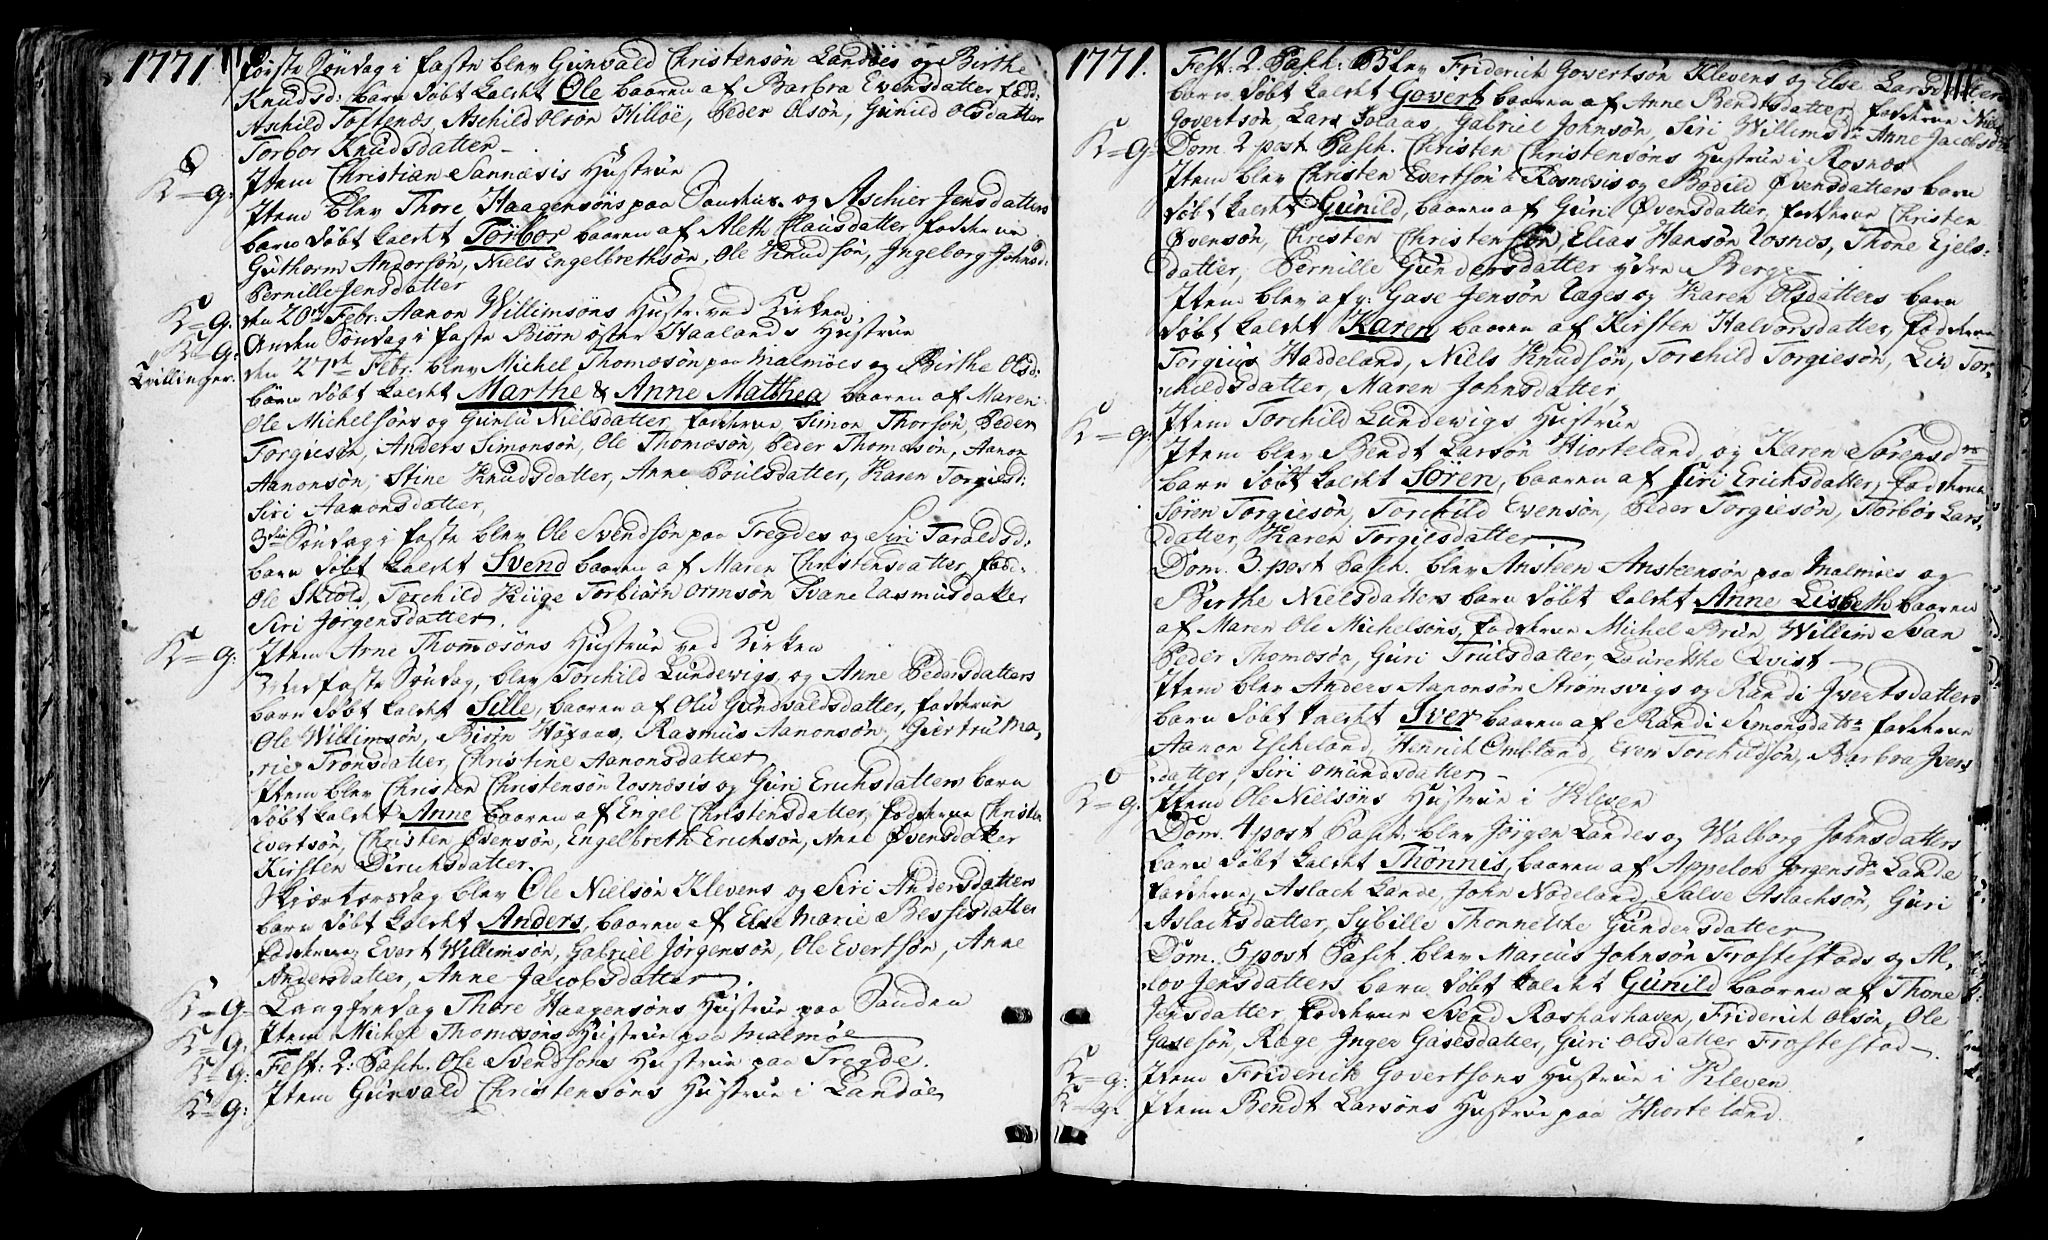 1771.
Første Søndag i faste blev Gunvald Christensøn Landøes og Birthe
Knudsd: barn døbt kaldt Ole baaren af Barbra Evensdatter fadd:
Aschild Toftenæs, Aschild Olsøn Hilløe, Peder Olsøn, Gunild Olsdatter
Torbor Knudsdatter
K=g: Item Christian Sannæsis Hustrue
Item blev Thore Haagensøns paa Sandnæs og Aschier Jensdatters
barn døbt kaldt Torbor baaren af Aleth Clausdatter fadderne
Guthorm Andorsøn, Niels Engelbrethsøn, Ole Knudsøn, Ingeborg Johnsd:
Pernille Jensdatter
K=g: den 20de Febr: Aanon Willimsøns Hustr: ved Kirken
K=g: Anden Søndag i faste Biørn øster Haalands Hustrue
Tvillinger. den 27de Febr: blev Michel Thomesøn paa Malmøes og Birthe Olsd:
børn døbt kaldt Marthe & Anne Matthea baaren af Maren
Ole Michelsøns og Gunlu Nielsdatter, fadderne, Simon Thorsøn, Peder
Torgiesøn, Anders Simonsøn, Ole Thomesøn, Peder Thomesøn, Aanon
Aanonsøn, Stine Knudsdatter, Anne Poulsdatter, Karen Torgiesd:
Siri Aanonsdatter,
3die Søndag i faste blev Ole Svendsøn paa Tregdes og Siri Taraldsd:
barn døbt kaldt Svend baaren af Maren Christensdatter, fadd:
Ole Skiold, Torchild Kiige Torbiørn Ormsøn Svane Rasmusdatter
Siri Jørgensdatter.
K=g: Item Arne Thomesøns Hustrue ved Kirken
Midfaste Søndag, blev Torchild Lundewigs, og Anne Pedersdatters
barn døbt kaldt Sille, baaren af Olu Gundvaldsdatter, fadderne
Ole Willimsøn, Biørn Høyaas, Rasmus Aanonsøn, Giertru Ma,
rie Tronsdatter, Christine Aanonsdatter
Item blev Christen Christensøn Rosnæsis og Guri Erichsdatters barn
døbt kaldt Anne baaren af Engel Christensdatter, fadderne Christen
Evertsøn, Christen Øvensøn, Engelbreth Erichsøn, Anne Øvensdatter
Kirsten Dirichsdatter.
Skiærtorsdag blev Ole Nielsøn Klevens og Siri Andersdatters
barn døbt kaldt Anders, baaren af Else Marie Bessesdatter
fadderne, Evert Willimsøn, Gabriel Jørgensøn, Ole Evertsøn, Anne
Andersdatter, Anne Jacobsdatter.
K=g= Langfredag Thore Haagensøns Hustrue paa Sanden
K=g. Item Michel Thomesøns Hustrue paa Malmøe
K=g: Fest: 2: Pasch. Ole Svendsøns Hustrue paa Tregde.
K=g: Item Gunvald Christensøns Hustrue i Landøe
1771.
Fest: 2. Pasch: Blev Friderich Govertsøn Klevens og Else Larsdatters
barn døbt kaldt Govert baaren af Anne Bendtsdatter, fadderne Niels
Govertsøn, Lars Solaas, Gabriel Johnsøn, Siri Willimsd: Anne Jacobsd:
K=g= Dom. 2 post Pasch. Christen Christensøns Hustrue i Rosnæs
Item blev Christen Evertsøn Rosnæsis og Bodild Øvensdatters barn
døbt kaldt Gunild, baaren af Guril Øvensdatter, fadderne Christen
Øvensøn, Christen Christensøn, Elias Hansøn Rosnæs, Thone Ejels:
datter, Pernille Gundersdatter ydre Berge
Item blev afg: Gase Jensøn Rages og Karen Olsdatters barn
døbt kaldt Karen baaren af Kirsten Halvorsdatter, fadderne
Torgius Haddeland, Niels Knudsøn, Torchild Torgiesøn, Liv Tor,
childsdatter, Maren Johnsdatter,
K=g: Item Torchild Lundewigs Hustrue
Item blev Bendt Larsøn Hiorteland, og Karen Sørensdr
barn døbt kaldt Søren, baaren af Siri Erichsdatter, fadderne
Søren Torgiesøn, Torchild Evensøn, Peder Torgiesøn, Torbor Lars,
datter, Karen Torgiesdatter
Dom. 3. post Pasch. blev Ansteen Ansteensøn paa Malmøes og
Birthe Nielsdatters barn døbt kaldt Anne Lisbeth baaren
af Maren Ole Michelsøns, fadderne Michel Brun, Willim Svan
Peder Thomesøn, Guri Trulsdatter, Laurethe Qvist
Item blev Anders Aanonsøn Strømsvigs og Randi Ivertsdatters
barn døbt kaldt Iver baaren af Randi Simonsdatr fadderne
Aanon Escheland, Henrich Omland, Even Torchildsøn, Barbra Ivers
datter, Siri Omundsdatter
K=g: Item Ole Nielsøns Hustrue i Kleven
Dom. 4 post Pasch: blev Jørgen Landes og Walborg Johnsdatters
barn døbt kaldt Thønnis, baaren af Appelon Jørgensdr Lande
fadderne, Aslach Lande, John Nodeland, Salve Aslachsøn, Guri
Aslachsdatter, Sybille Thonnethe Gundersdatter
Dom. 5 post Pasch. blev Marcus Johnsøn Frostestads og Al,
lov Jensdatters barn døbt kaldt Gunild baaren af Thone
Jensdatter, fadderne Svend Roshashaven, Friderich Olsøn, Ole
Gasesøn, Rage Inger Gasesdatter, Guri Olsdatter Frostestad.
K=g: Item Friderich Govertsøns Hustrue i Kleven
K=g: Item Bendt Larsøns Hustrue paa Hiorteland.